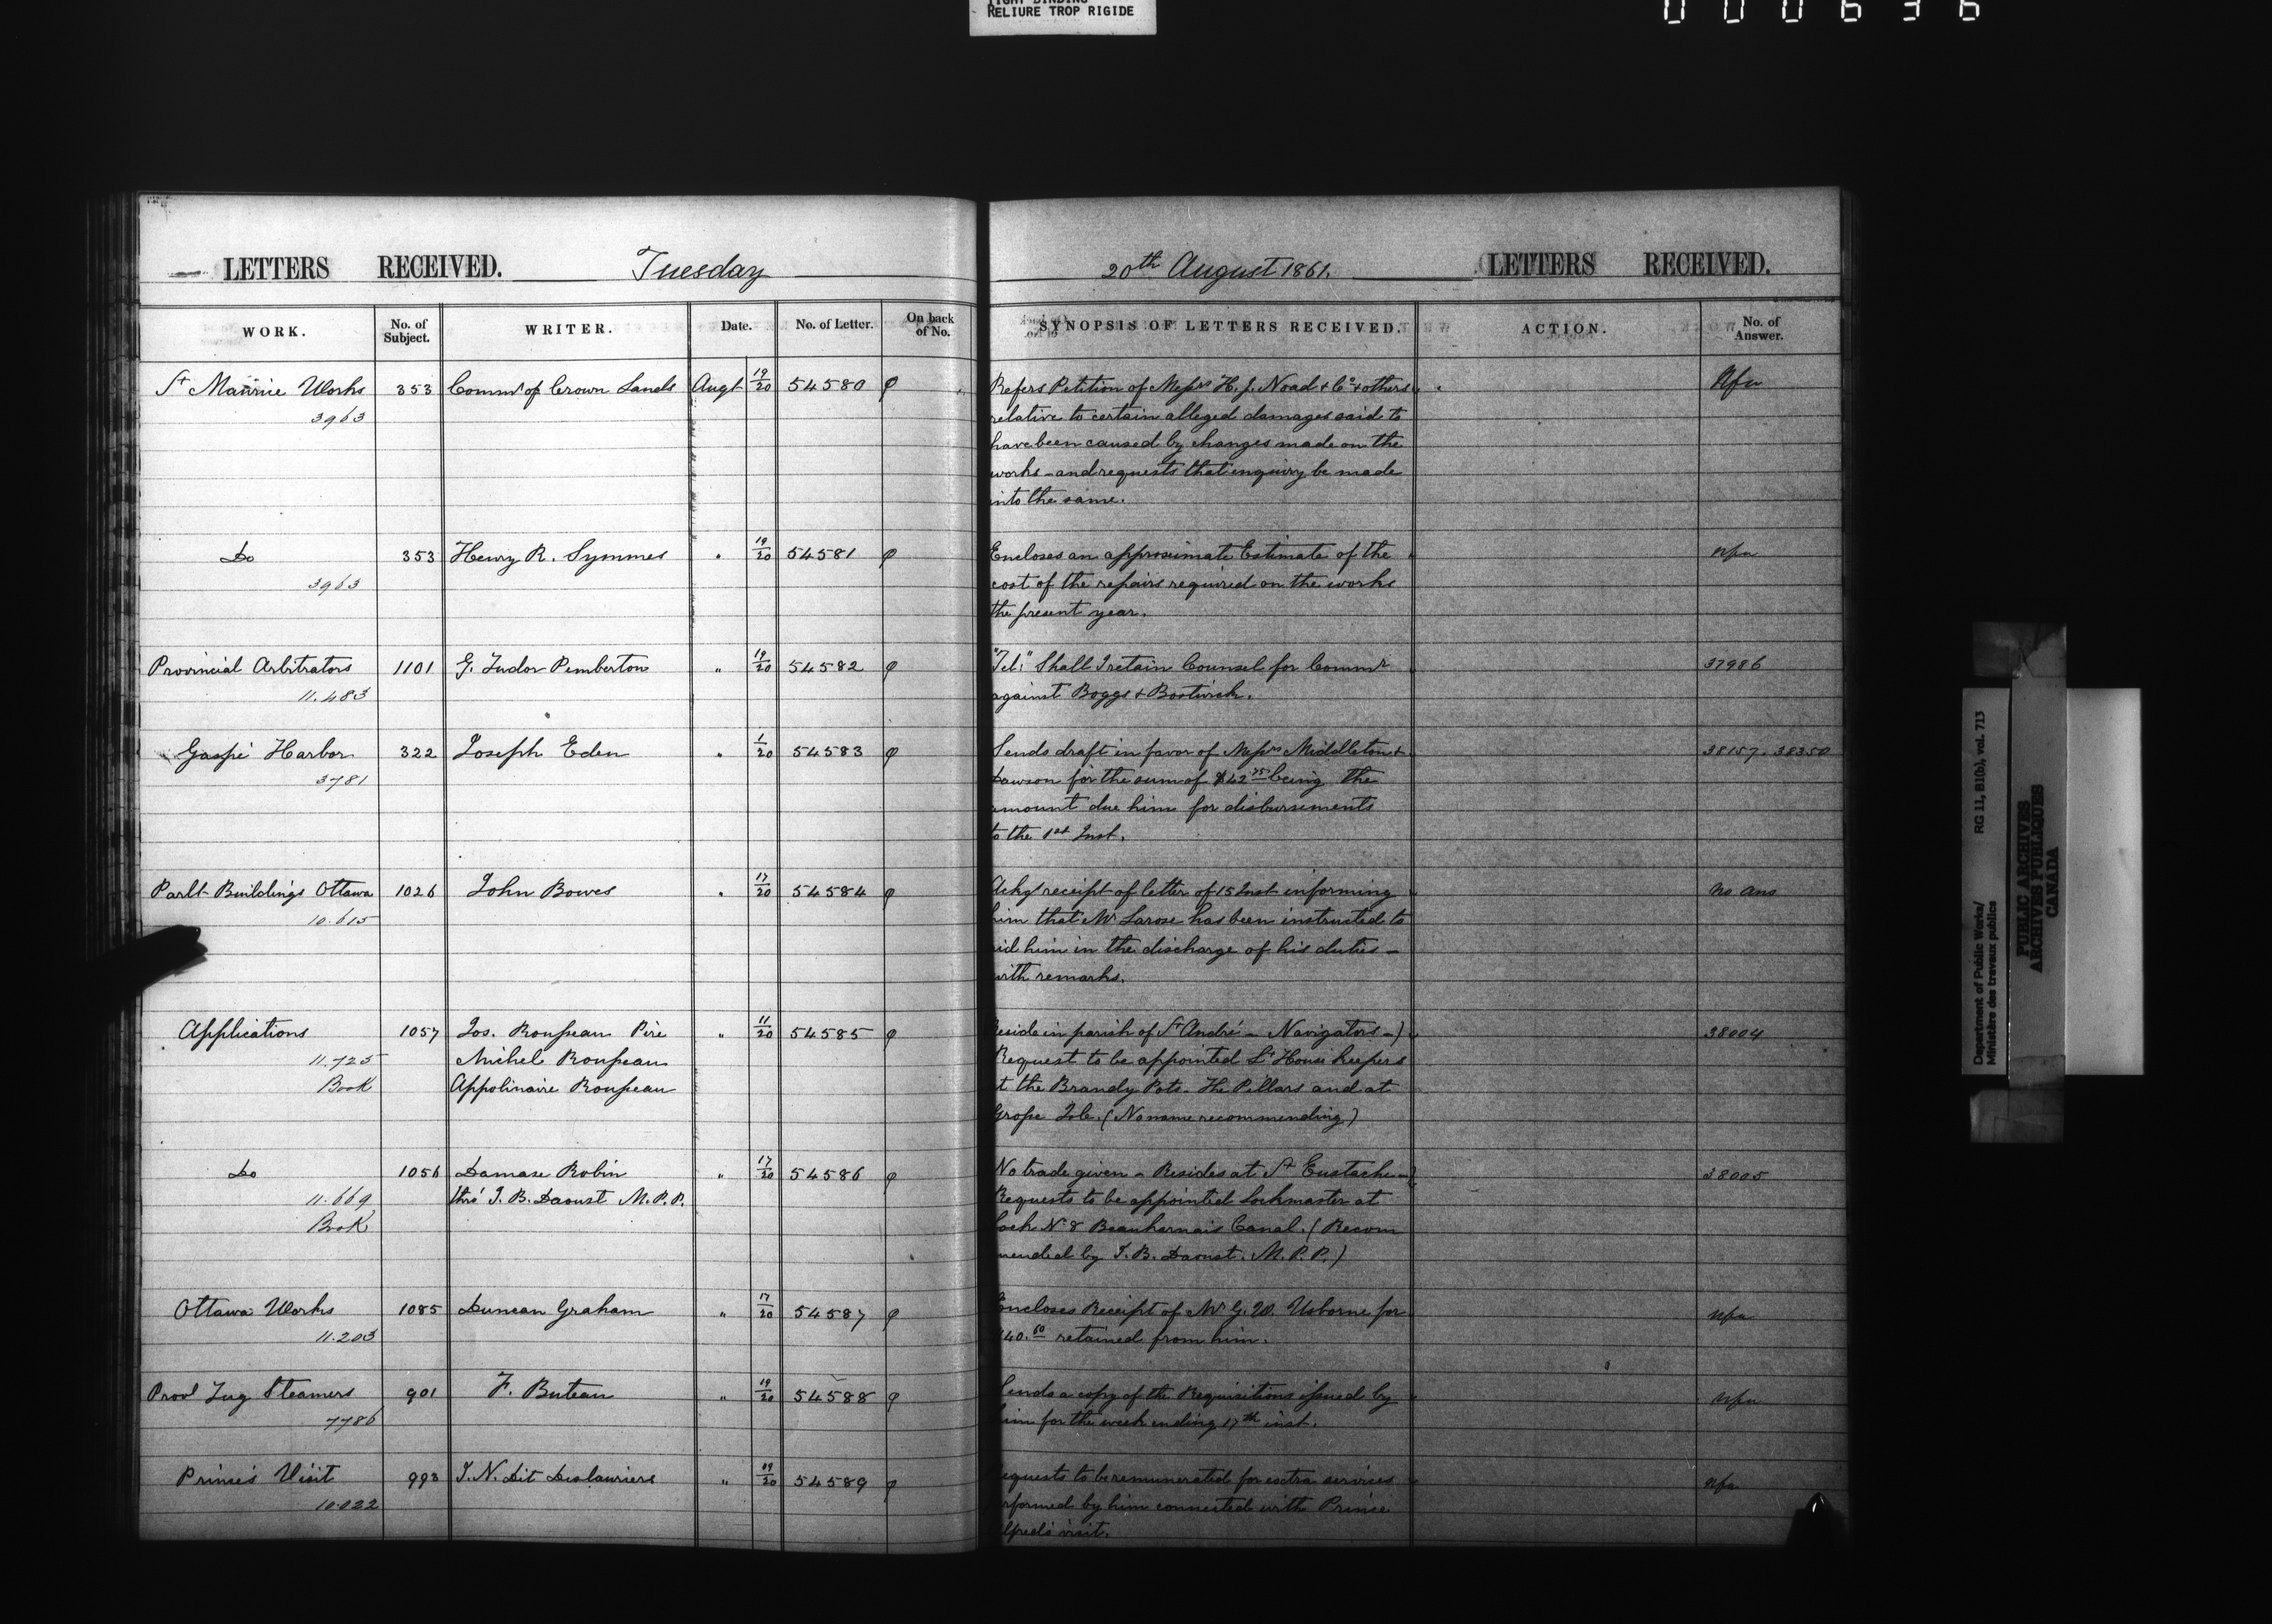 TIGHT BINDING
RELIURE TROP RIGIDE
000636
LETTERS RECEIVED. Tuesday
20th August 1861. LETTERS RECEIVED.
WORK. No. of Subject. WRITER. Date. No. of Letter. On back of No. SYNOPSIS OF LETTERS RECEIVED. ACTION. No. of Answer.
St Maurice Works 353 Commr of Crown Lands Augt 19/20 54580 φ Refers Petition of Messrs H. J. Noad & Co & others Nfa
3963 relative to certain alleged damages said to
have been caused by changes made on the
works - and requests that enquiry be made
into the same.
Do 353 Henry R. Symmes " 19/20 54581 φ Encloses an approximate Estimate of the Nfa
3963 cost of the repairs required on the works
the present year.
Provincial Arbitrators 1101 G. Tudor Pemberton " 19/20 54582 φ "Tel:" Shall I retain Counsel for Commr 37986
11.483 against Boggs & Bostwick.
Gaspé Harbor 322 Joseph Eden " 1/20 54583 φ Sends draft in favor of Messrs Middleton & 38157. 38350
3781 Dawson for the sum of $42 75 being the
amount due him for disbursements
to the 1st Inst.
Parlt Buildings Ottawa 1026 John Bowes " 17/20 54584 φ Ackg receipt of letter of 15 Inst informing No Ans
10.615 him that Mr Larose has been instructed to
aid him in the discharge of his duties -
with remarks.
Applications 1057 Jos. Rousseau Père " 11/20 54585 φ Reside in parish of St André - Navigators -) 38004
11.725 Michel Rousseau Request to be appointed Lt House keepers
Book Appolinaire Rousseau at the Brandy Pots. The Pillars and at
Grosse Isle. (No name recommending)
Do 1056 Damase Robin " 17/20 54586 φ No trade given - Resides at St Eustache - 38005
11.669 thro' J. B. Daoust M.P.P. Requests to be appointed Lockmaster at
Book Lock No 8 Beauharnais Canal. (Recom
mended by J. B. Daoust. M.P.P.)
Ottawa Works 1085 Duncan Graham " 17/20 54587 φ Encloses Receipt of Mr G. W. Usborne for Nfa
11.203 $40.60 retained from him.
Provl Tug Steamers 901 F. Buteau " 19/20 54588 φ Sends a copy of the Requisitions issued by Nfa
7786 him for the week ending 17th inst.
Prince's Visit 993 J. N. Dit Deslauriers " 19/20 54589 φ Requests to be remunerated for extra services Nfa
10.022 performed by him connected with Prince
Alfred's visit.
Department of Public Works/ RG 11, B1(b), vol. 713
Ministère des travaux publics
PUBLIC ARCHIVES
ARCHIVES PUBLIQUES
CANADA